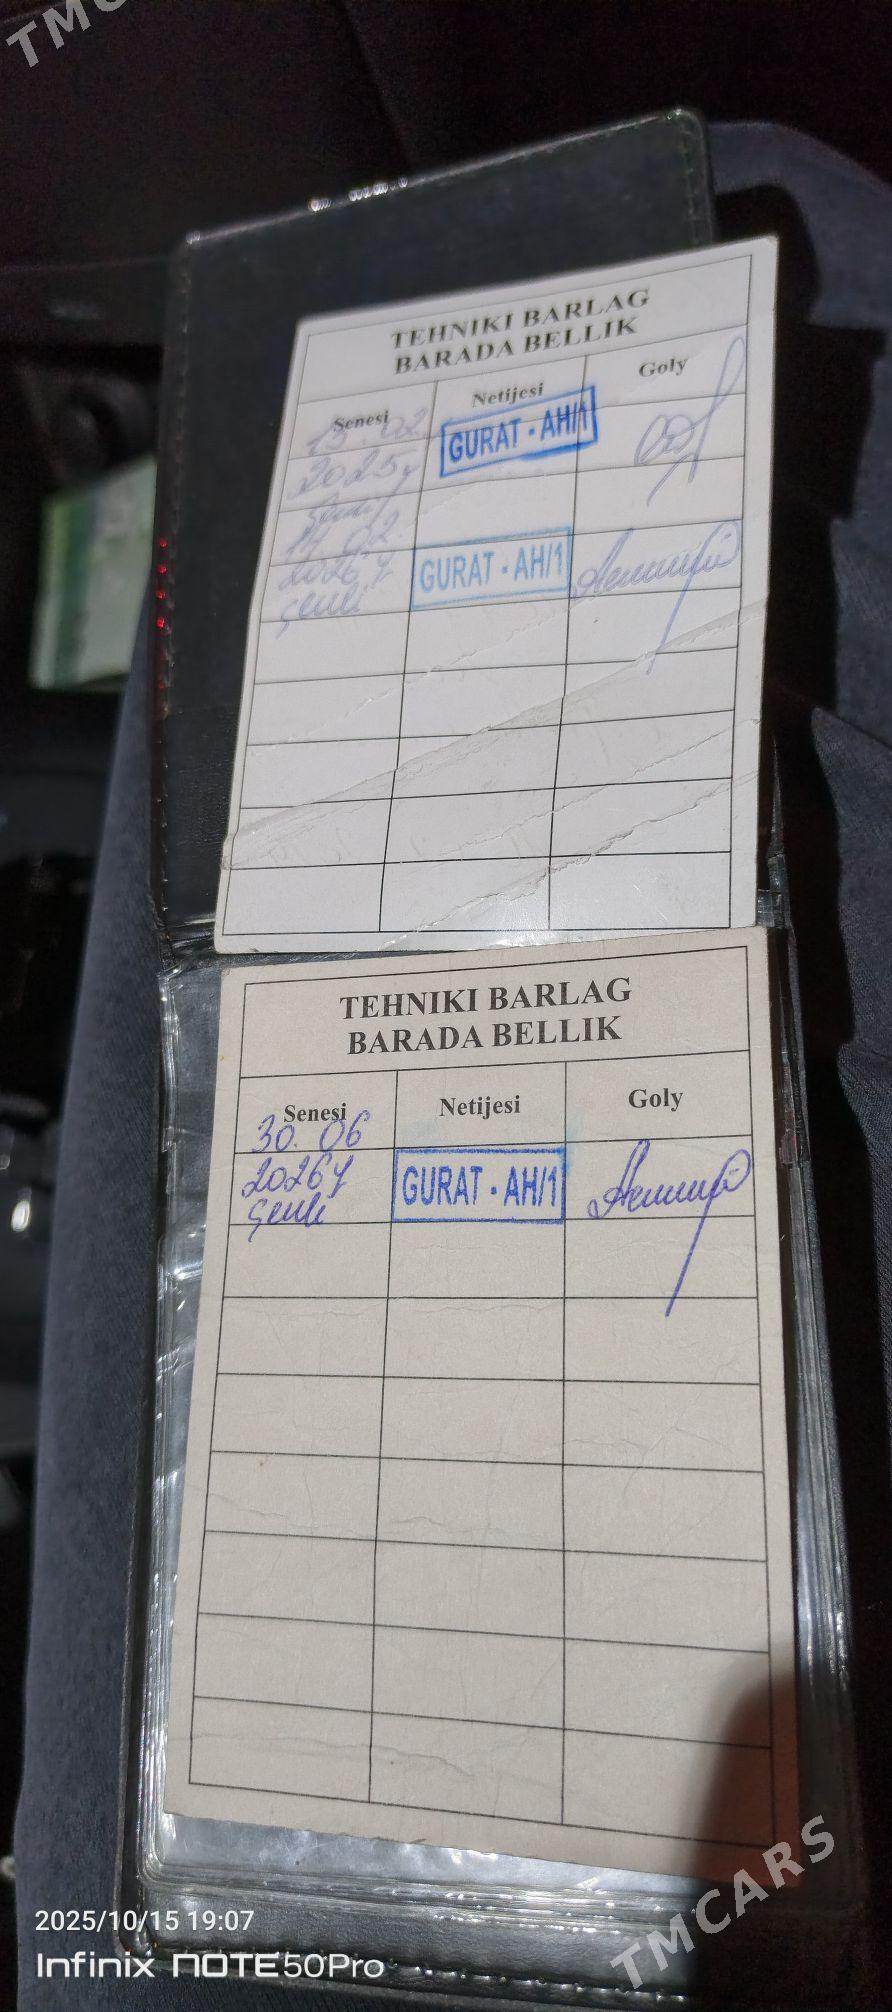 TMC
TEHNIKI BARLAG
BARADA BELLIK
Senesi Netijesi Goly
13.02 GURAT - AH/1
2025 y
14.02.
2026 y GURAT - AH/1
çenli
TEHNIKI BARLAG
BARADA BELLIK
Senesi Netijesi Goly
30.06
2026 y GURAT - AH/1
çenli
2025/10/15 19:07
Infinix NOTE50Pro
TMCARS